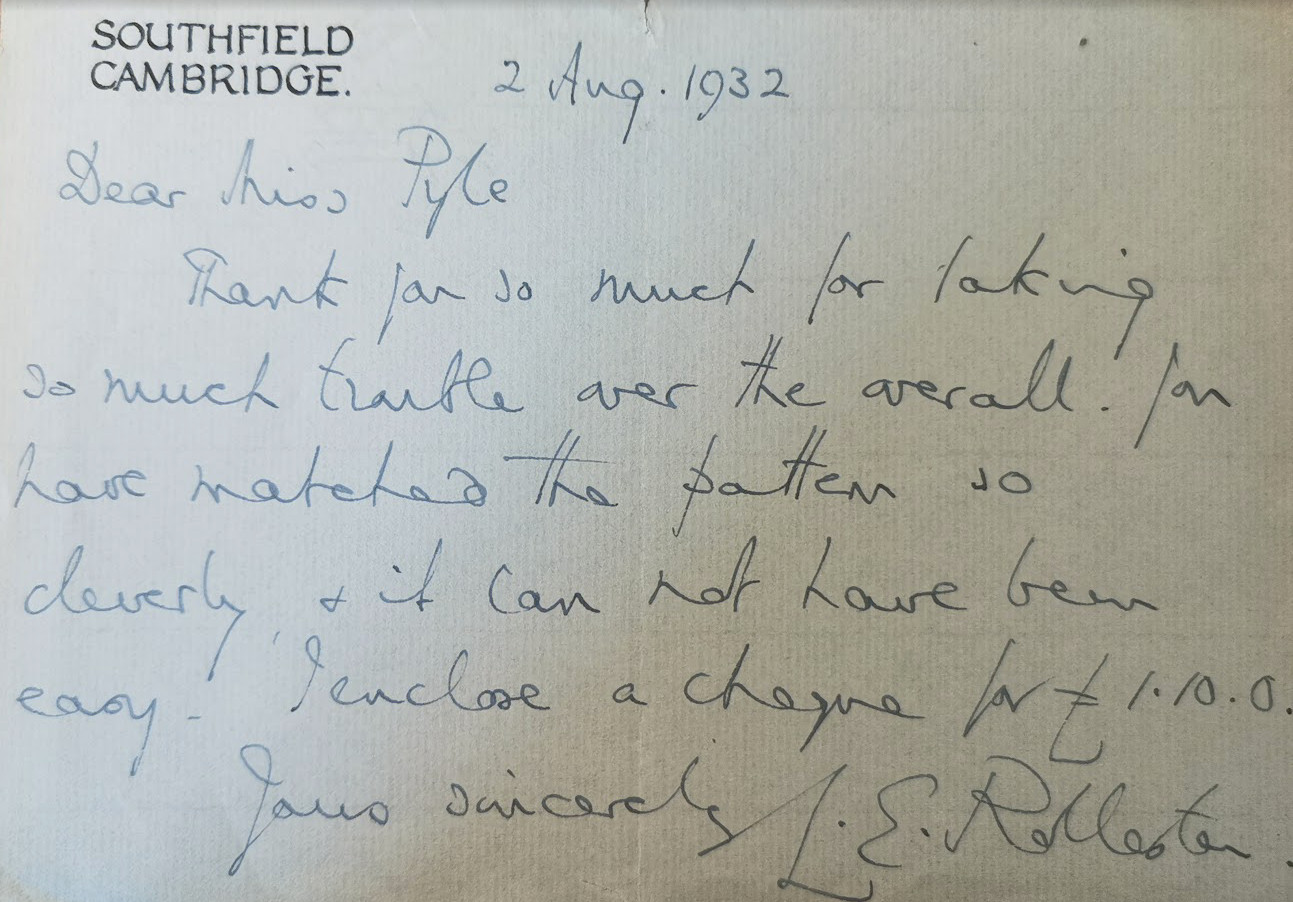 SOUTHFIELD
CAMBRIDGE.
2 Aug. 1932
Dear Miss Pyle
Thank you so much for taking
so much trouble over the overall. You
have matched the pattern so
cleverly, & it can not have been
easy. I enclose a cheque for £1.10.0.
Yours sincerely L. E. Rolleston.